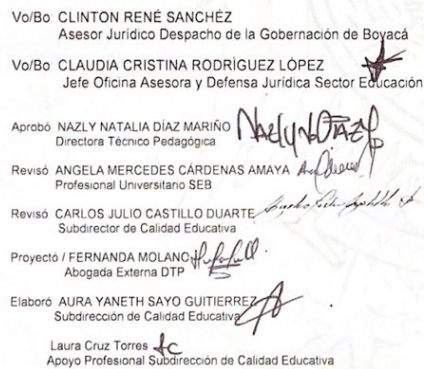 Vo/Bo CLINTON RENÉ SANCHÉZ
Asesor Jurídico Despacho de la Gobernación de Boyacá
Vo/Bo CLAUDIA CRISTINA RODRÌGUEZ LÓPEZ
Jefe Oficina Asesora y Defensa Jurídica Sector Educación
Aprobó NAZLY NATALIA DÍAZ MARIÑO NAZLY N DÍAZ
Directora Técnico Pedagógica
Revisó ANGELA MERCEDES CÁRDENAS AMAYA
Profesional Universitario SEB
Revisó CARLOS JULIO CASTILLO DUARTE
Subdirector de Calidad Educativa
Proyectó / FERNANDA MOLANO
Abogada Externa DTP
Elaboró AURA YANETH SAYO GUITIERREZ
Subdirección de Calidad Educativa
Laura Cruz Torres
Apoyo Profesional Subdirección de Calidad Educativa